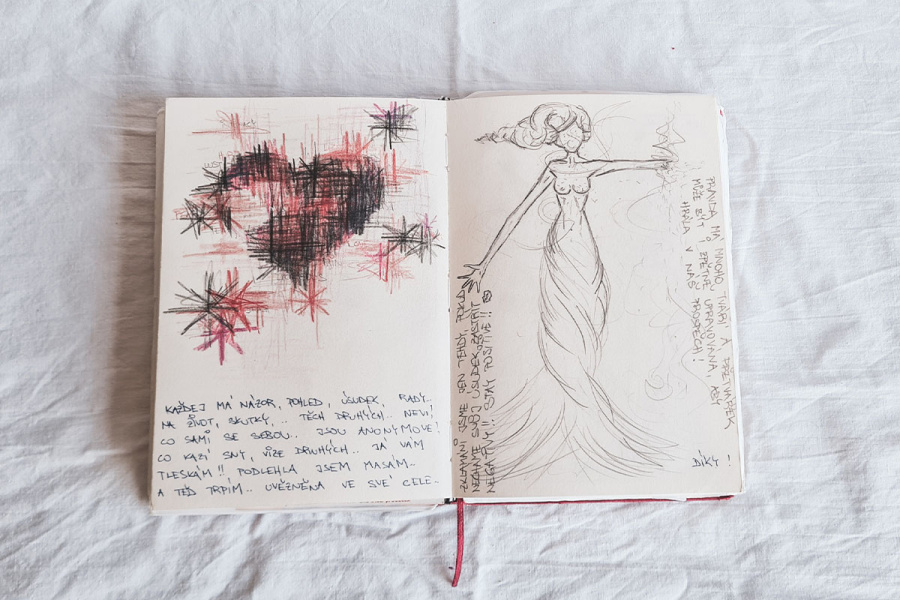 KAŽDEJ MÁ NÁZOR, POHLED, ÚSUDEK, RADY..
NA ŽIVOT, SKUTKY, .. TĚCH DRUHÝCH.. NEVÍ,
CO SAMI SE SEBOU.. JSOU ANONYMOVÉ!
CO KAZÍ SNY, VIZE DRUHÝCH.. JÁ VÁM
TLESKÁM!! PODLEHLA JSEM MASÁM..
A TEĎ TRPÍM.. UVĚZNĚNA VE SVÉ CELE..
ZKLAMÁNÍ JSME JEN TEHDY, POKUD
NECHÁME SVŮJ ÚSUDEK ZASTŘÍT
NEGATIVY!! STAY POSITIVE!!
PRAVDA MÁ MNOHO TVÁŘÍ A PŘETVÁŘEK
MŮŽE BÝT I ZPĚTNĚ UPRAVOVÁNA, ABY
HRÁLA V NÁŠ PROSPĚCH!
DÍKY!